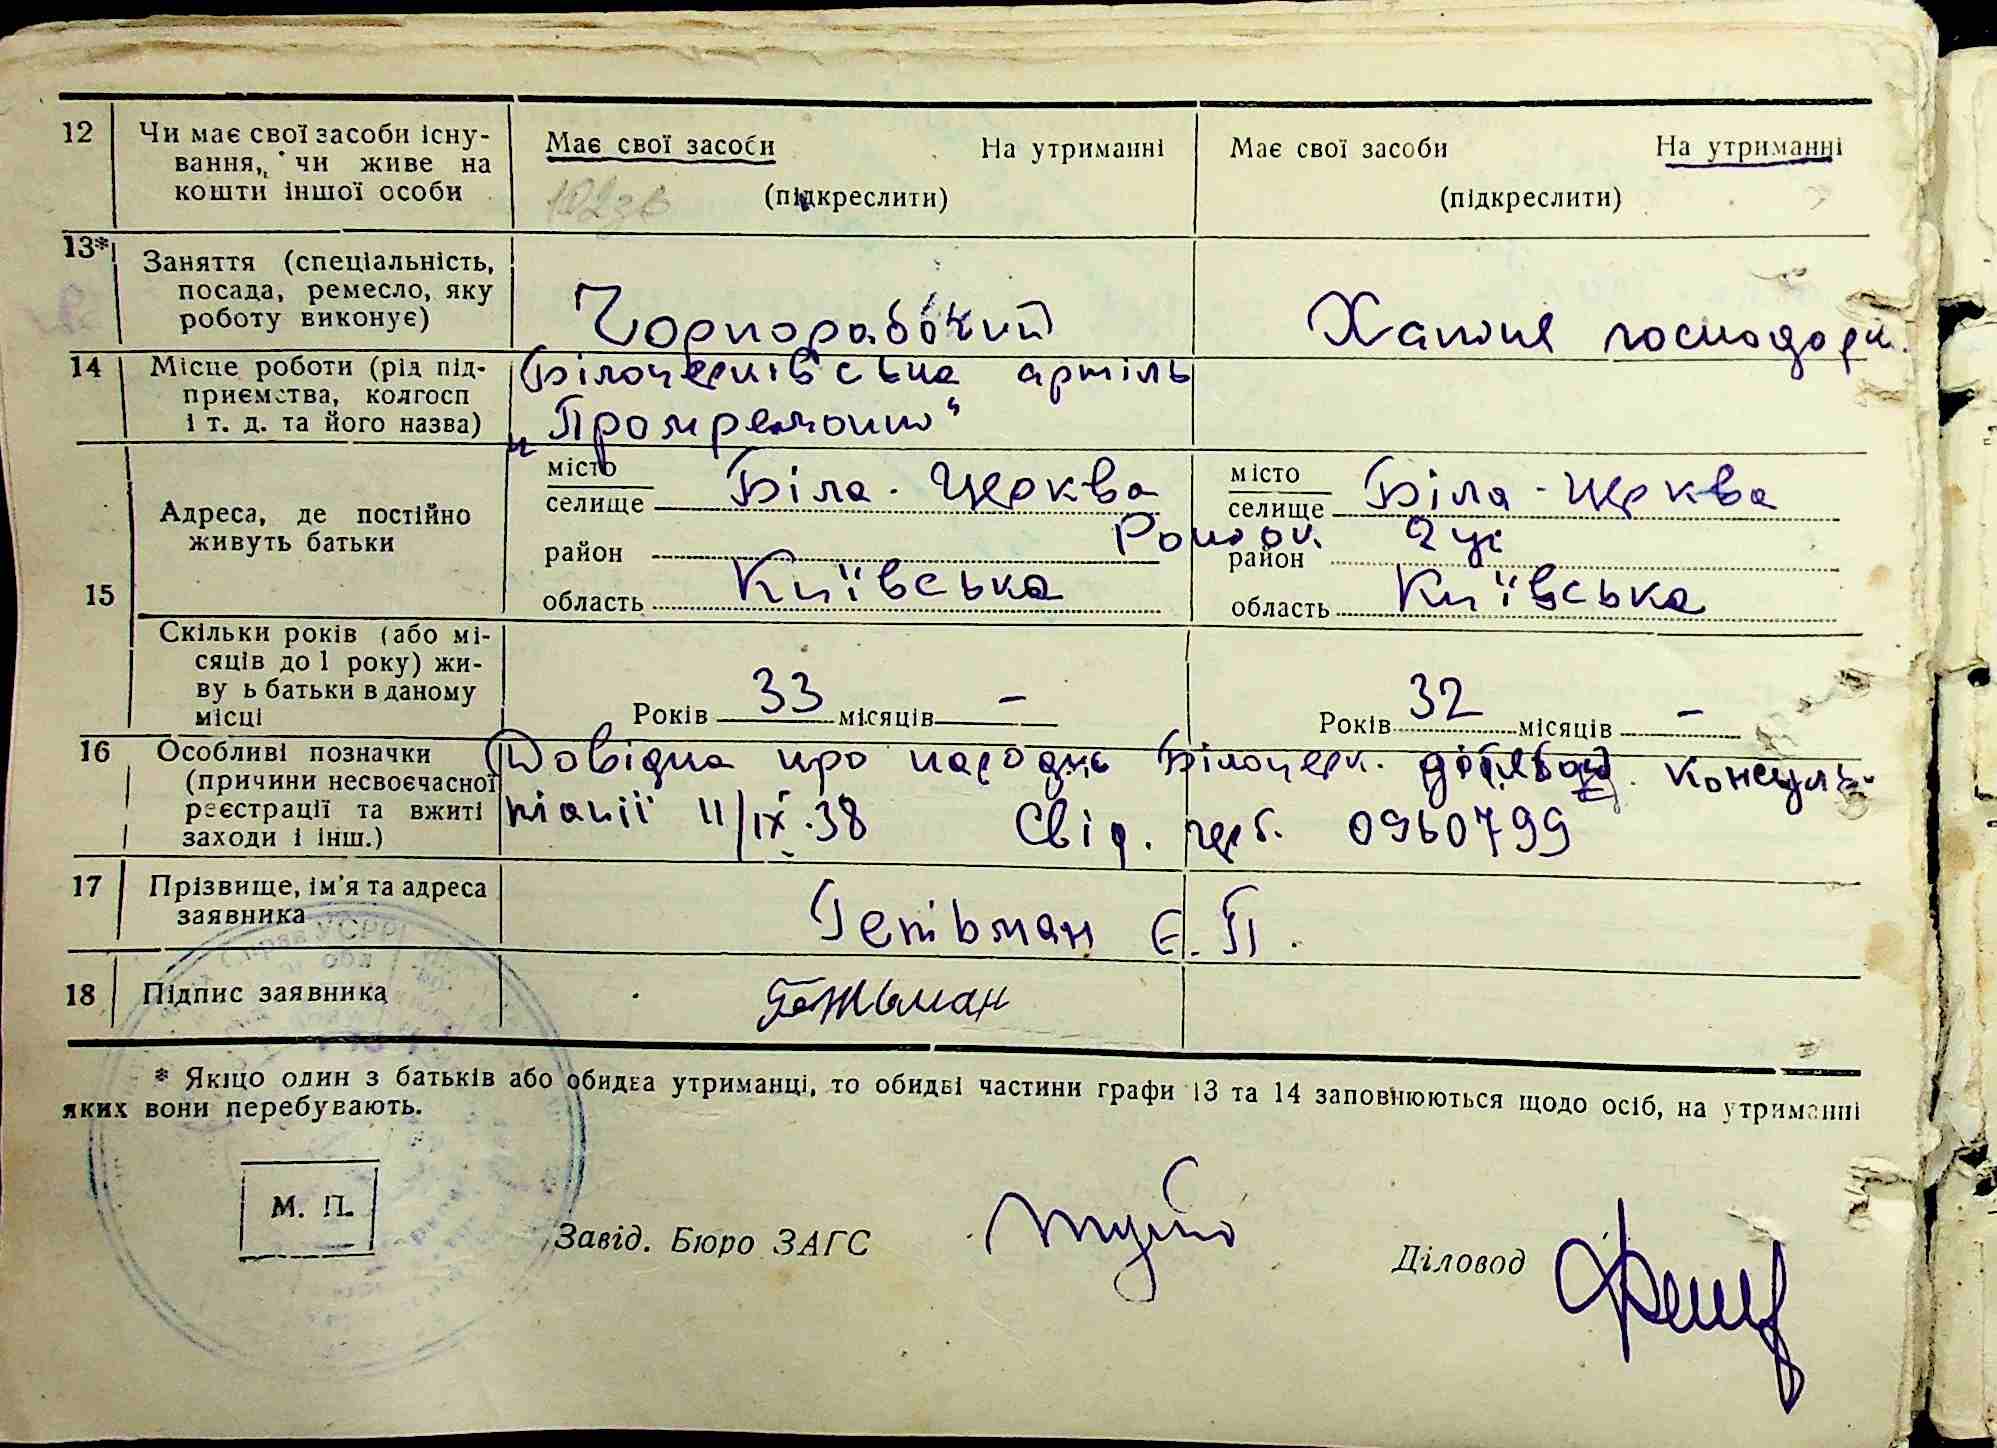 12 Чи має свої засоби існу-
вання, чи живе на
кошти іншої особи
Має свої засоби На утриманні
(підкреслити)
Має свої засоби На утриманні
(підкреслити)
13* Заняття (спеціальність,
посада, ремесло, яку
роботу виконує)
Чорноробочий
Хатня господарк.
14 Місце роботи (рід під-
приємства, колгосп
і т. д. та його назва)
Білоцерківська артіль
„Промремонт“
15 Адреса, де постійно
живуть батьки
місто
селище Біла-Церква
район
область Київська
місто
селище Біла-Церква
район
область Київська
Скільки років (або мі-
сяців до 1 року) жи-
ву ь батьки в даному
місці
Років 33 місяців —
Років 32 місяців —
16 Особливі позначки
(причини несвоєчасної
реєстрації та вжиті
заходи і інш.)
Довідка про народж Білоцерк. консуль-
тації 11/IX.38 Свід. 0960799
17 Прізвище, ім'я та адреса
заявника
Гетьман Є. П.
18 Підпис заявника
Гетьман
* Якщо один з батьків або обидва утриманці, то обидві частини графи 13 та 14 заповнюються щодо осіб, на утриманні
яких вони перебувають.
М. П.
Завід. Бюро ЗАГС
Діловод